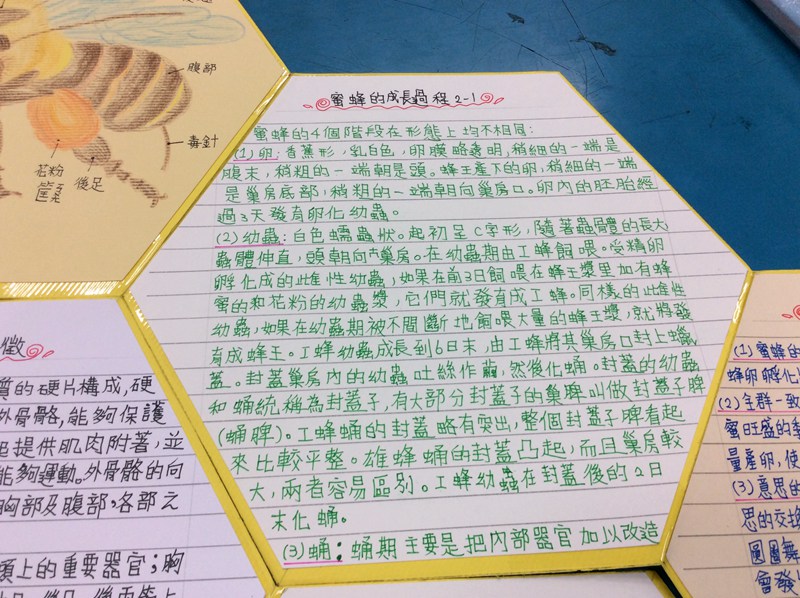 腹部
毒針
後足
花粉
筐
蜜蜂的成長過程2-1
蜜蜂的4個階段在形態上均不相同:
(1)卵:香蕉形,乳白色,卵膜略透明,稍細的一端是
腹末,稍粗的一端朝是頭。蜂王產下的卵,稍細的一端
是巢房底部,稍粗的一端朝向巢房口。卵內的胚胎經
過3天發育卵化幼蟲。
(2)幼蟲:白色蠕蟲狀。起初呈C字形,隨著蟲體的長大
蟲體伸直,頭朝向巢房。在幼蟲期由工蜂飼喂。受精卵
孵化成的雌性幼蟲,如果在前3日飼喂在蜂王漿里加有蜂
蜜的和花粉的幼蟲漿,它們就發育成工蜂。同樣的雌性
幼蟲,如果在幼蟲期被不間斷地飼喂大量的蜂王漿,就將發
育成蜂王。工蜂幼蟲成長到6日末,由工蜂將其巢房口封上蠟
蓋。封蓋巢房內的幼蟲吐絲作繭,然後化蛹。封蓋的幼蟲
和蛹統稱為封蓋子,有大部分封蓋子的巢脾叫做封蓋子脾
(蛹脾)。工蜂蛹的封蓋略有突出,整個封蓋子脾看起
來比較平整。雄蜂蛹的封蓋凸起,而且巢房較
大,兩者容易區別。工蜂幼蟲在封蓋後的2日
末化蛹。
(3)蛹:蛹期主要是把內部器官加以改造
徵
質的硬片構成,硬
外骨骼,能夠保護
提供肌肉附著,並
能夠運動。外骨骼的向
胸部及腹部,各部之
頭上的重要器官;胸
(1)蜜蜂的
蜂卵孵化
(2)全群一致
蜜旺盛的季
量產卵,使
(3)意思的
思的交換
圓圈舞
會發